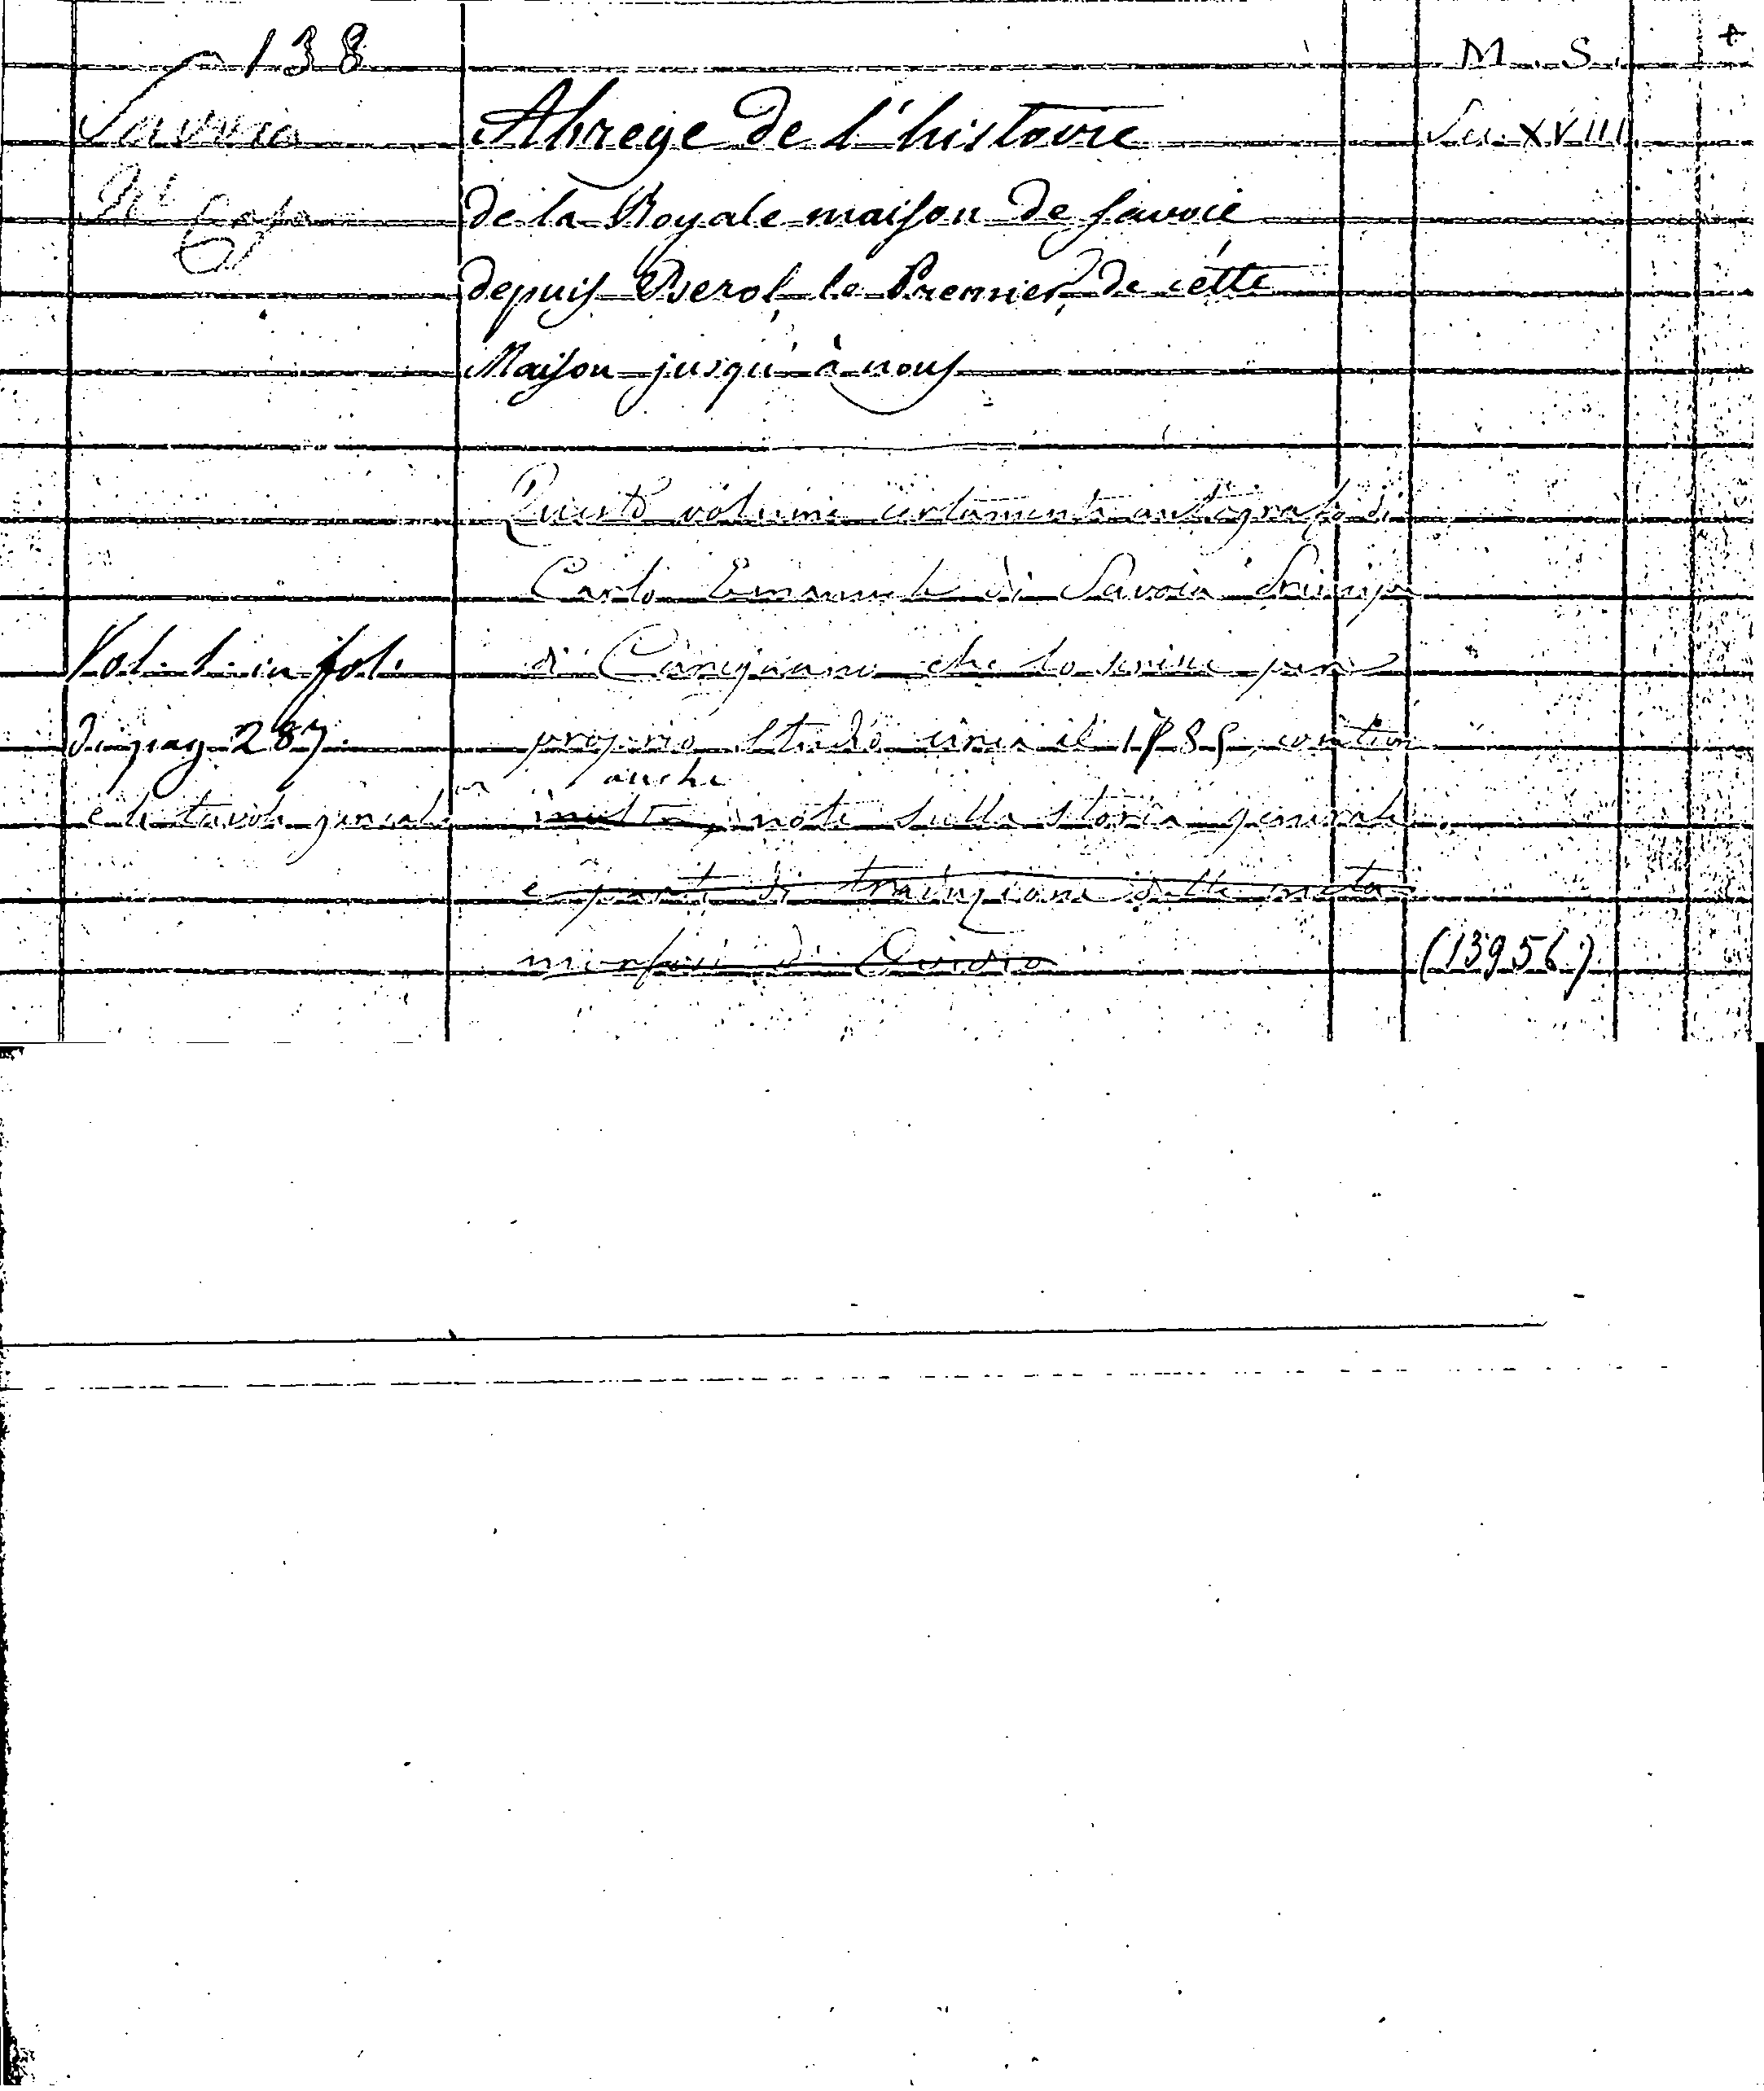 138
M. S.
Savoia
Abrege de l'histoire
Sec. XVIII
Rl Casa
de la Royale maison de savoie
depuis Berol le Premier de cette
Maison jusqu'à nous
Questo volume certamente autografo di
Carlo Emanuele di Savoia Principe
Vol. 1. in fol.
di Carignano che lo scrisse per
di pag 287.
proprio studio circa il 1785, contien
anche
e le tavole geneal.
inoltre note sulla storia generale.
e parte di traduzione delle meta
morfosi di Ovidio
(13956)